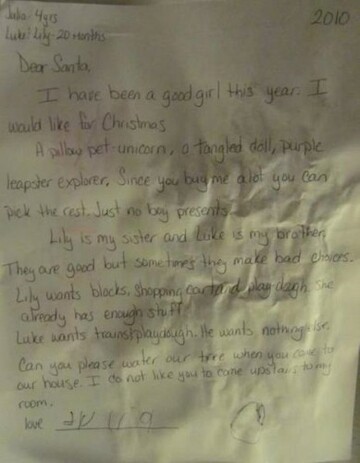 Julia - 4yrs
2010
Luke/Lily - 20 Months
Dear Santa,
I have been a good girl this year. I
would like for Christmas
A pillow pet-unicorn, a tangled doll, purple
leapster explorer. Since you buy me alot you can
pick the rest. Just no boy presents.
Lily is my sister and Luke is my brother.
They are good but sometimes they make bad choices.
Lily wants blocks, shopping cart and playdough. She
already has enough stuff.
Luke wants trains+playdough. He wants nothing else.
Can you please water our tree when you come to
our house. I do not like you to come upstairs to my
room.
love